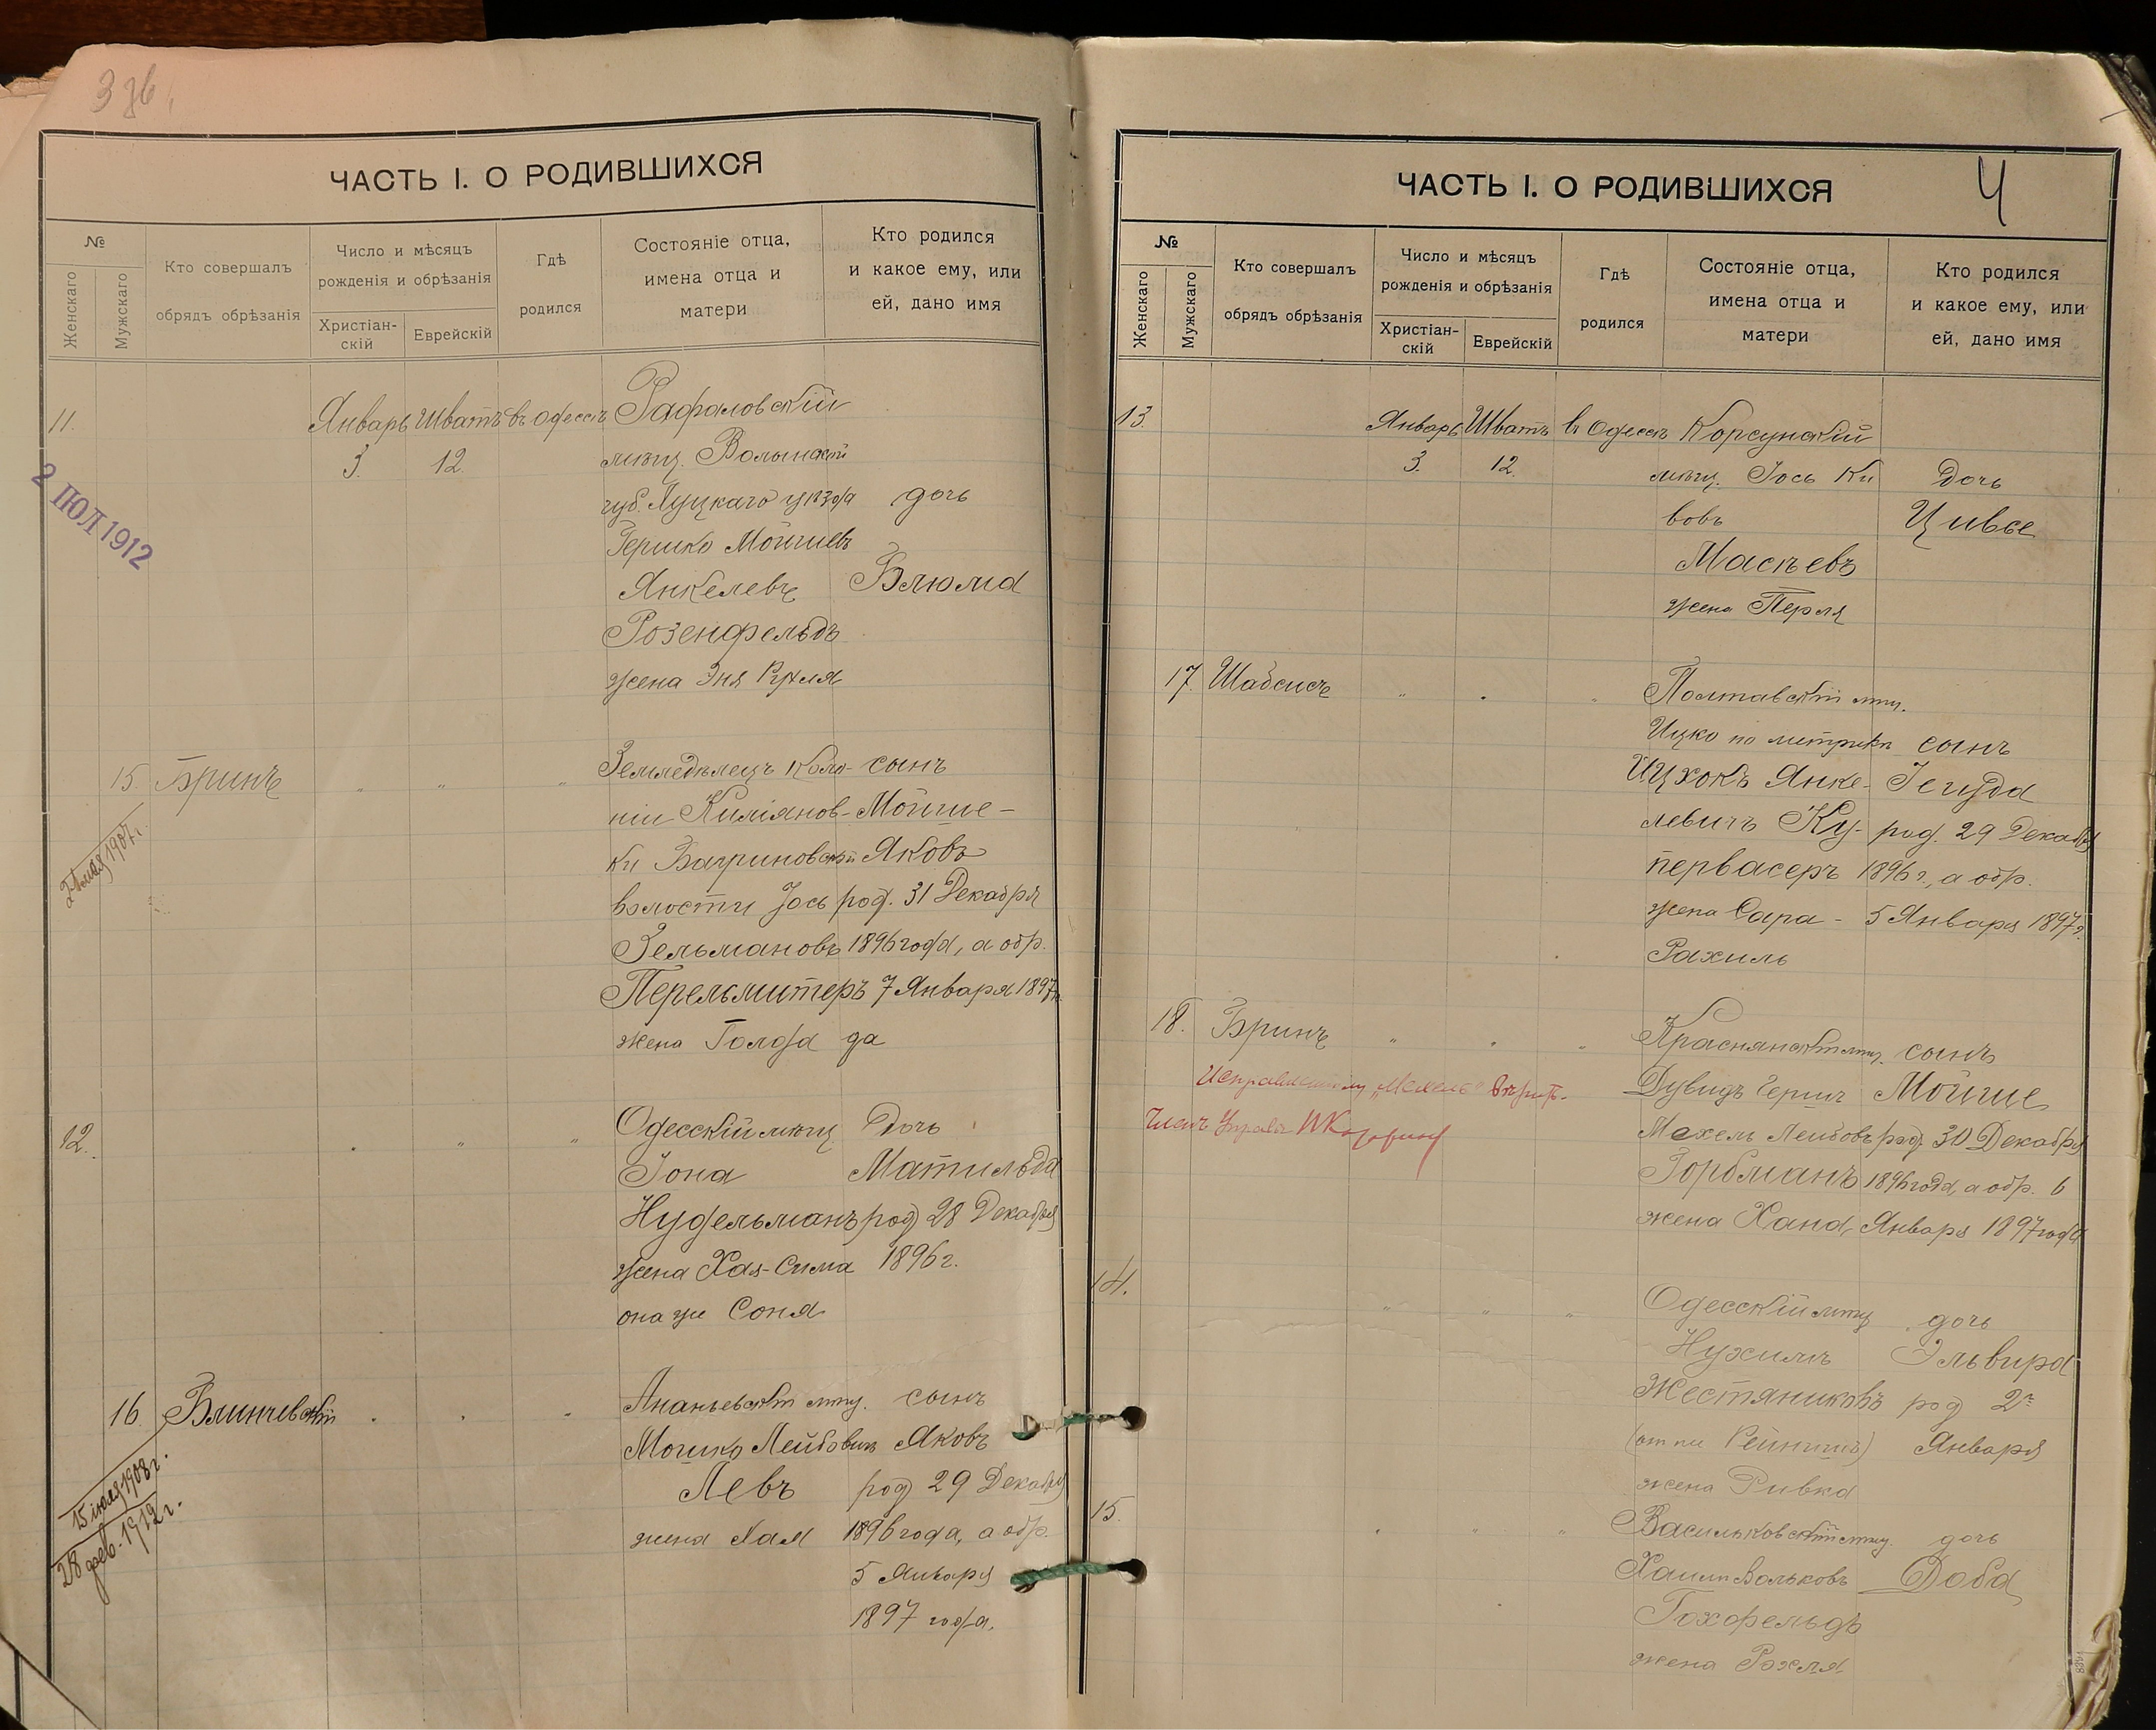 3 зв.
ЧАСТЬ I. О РОДИВШИХСЯ
№
Женскаго
Мужскаго
Кто совершалъ
обрядъ обрѣзанія
Число и мѣсяцъ
рожденія и обрѣзанія
Христіан-
скій
Еврейскій
Гдѣ
родился
Состояніе отца,
имена отца и
матери
Кто родился
и какое ему, или
ей, дано имя
11. Январь Шватъ въ Одессѣ Рафаловскій
3. 12. мѣщ. Волынской
губ. Луцкаго уѣзда дочь
Гершко Мошиевъ
Янкелевъ Блюма
Розенфельдъ
жена Эня Рухля
2 ІЮЛ 1912
15. Бринъ " " " Земледѣлецъ коло- сынъ
ніи Киліянов- Мойше-
ки Багриновской Яковъ
волости Іось род. 31 Декабря
Зельмановъ 1896 года, а обр.
Перельмитеръ 7 Января 1897 го
жена Голда да
1907 г.
12. " " " Одесскій мѣщ. Дочь
Іона Матильда
Нудельманъ род 28 Декабря
жена Хая-Сима 1896 г.
она же Соня
16. Блинчевскій " " " Ананьевскій мѣщ. сынъ
Мошко Лейбовъ Яковъ
Левъ род 29 Декабря
жена Хая 1896 года, а обр.
5 Января
1897 года.
15 іюля 1908 г.
28 фев. 1912 г.
4
ЧАСТЬ I. О РОДИВШИХСЯ
№
Женскаго
Мужскаго
Кто совершалъ
обрядъ обрѣзанія
Число и мѣсяцъ
рожденія и обрѣзанія
Христіан-
скій
Еврейскій
Гдѣ
родился
Состояніе отца,
имена отца и
матери
Кто родился
и какое ему, или
ей, дано имя
13. Январь Шватъ въ Одессѣ Корсунскій
3. 12. мѣщ. Іось Ки Дочь
вовъ Цивье
Масѣевъ
жена Перля
17. Шабсисъ " " " Полтавскій мѣщ.
Ицко по метрикѣ сынъ
Ицхокъ Янке- Іегуда
левичъ Ку- род. 29 Декабря
первасеръ 1896 г., а обр.
жена Сара- 5 Января 1897 г.
Рахиль
18. Бринъ " " " Краснянскій мѣщ. сынъ
Дувидъ Герши Мойше
Мехель Лейбовъ род. 30 Декабря
Горбманъ 1896 года, а обр. 6
жена Хана, Января 1897 года
Исправленному „Мехель" вѣрить.
Членъ Управы
14. " " " Одесскій мѣщ дочь
Нухимъ Эльвира
Жестяниковъ род 2го
Января
жена Ривка
15. " " " Васильковскій мѣщ. дочь
Хаимъ Вольковъ Доба
Гохфельдъ
жена Рохля